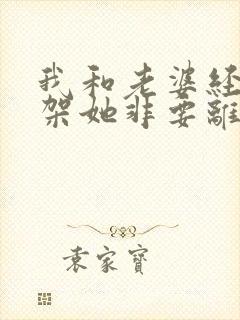 我和老婆经
架她非要離
袁家寶